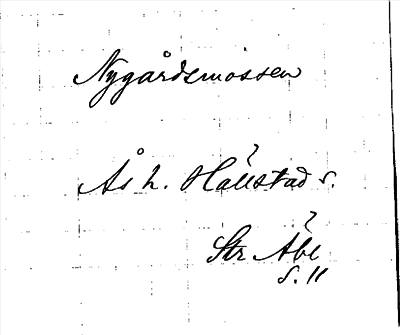 Nygårdsmossen
?
Ås h. Hällstad s.
?
Str Äbc
S. 11